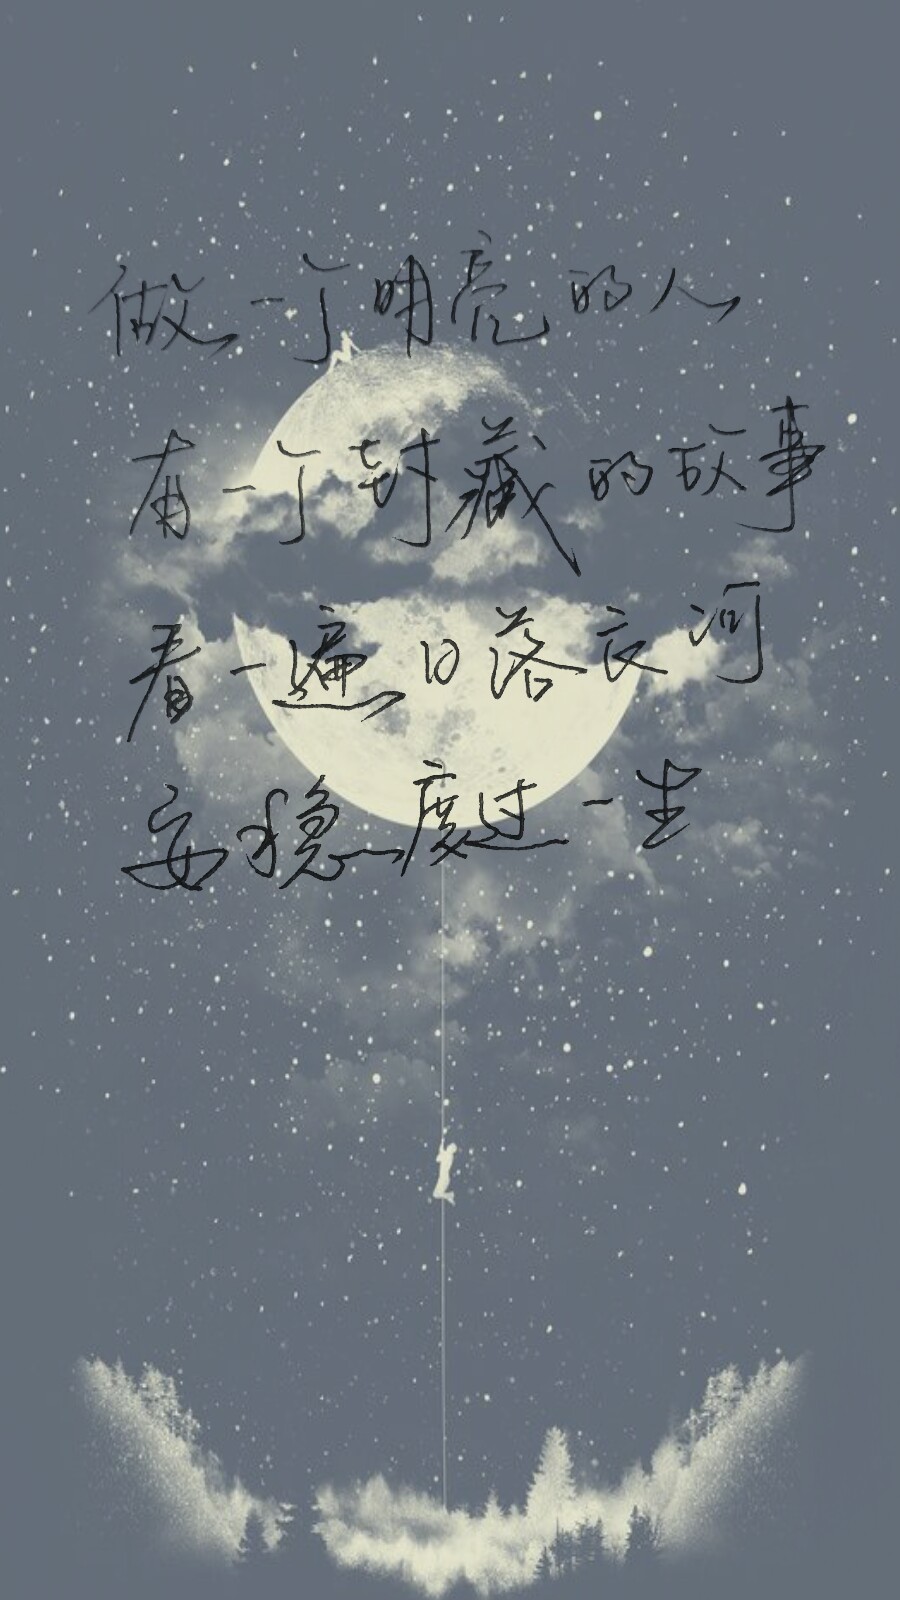 做一个明亮的人
有一个封藏的故事
看一遍日落衣河
安稳度过一生